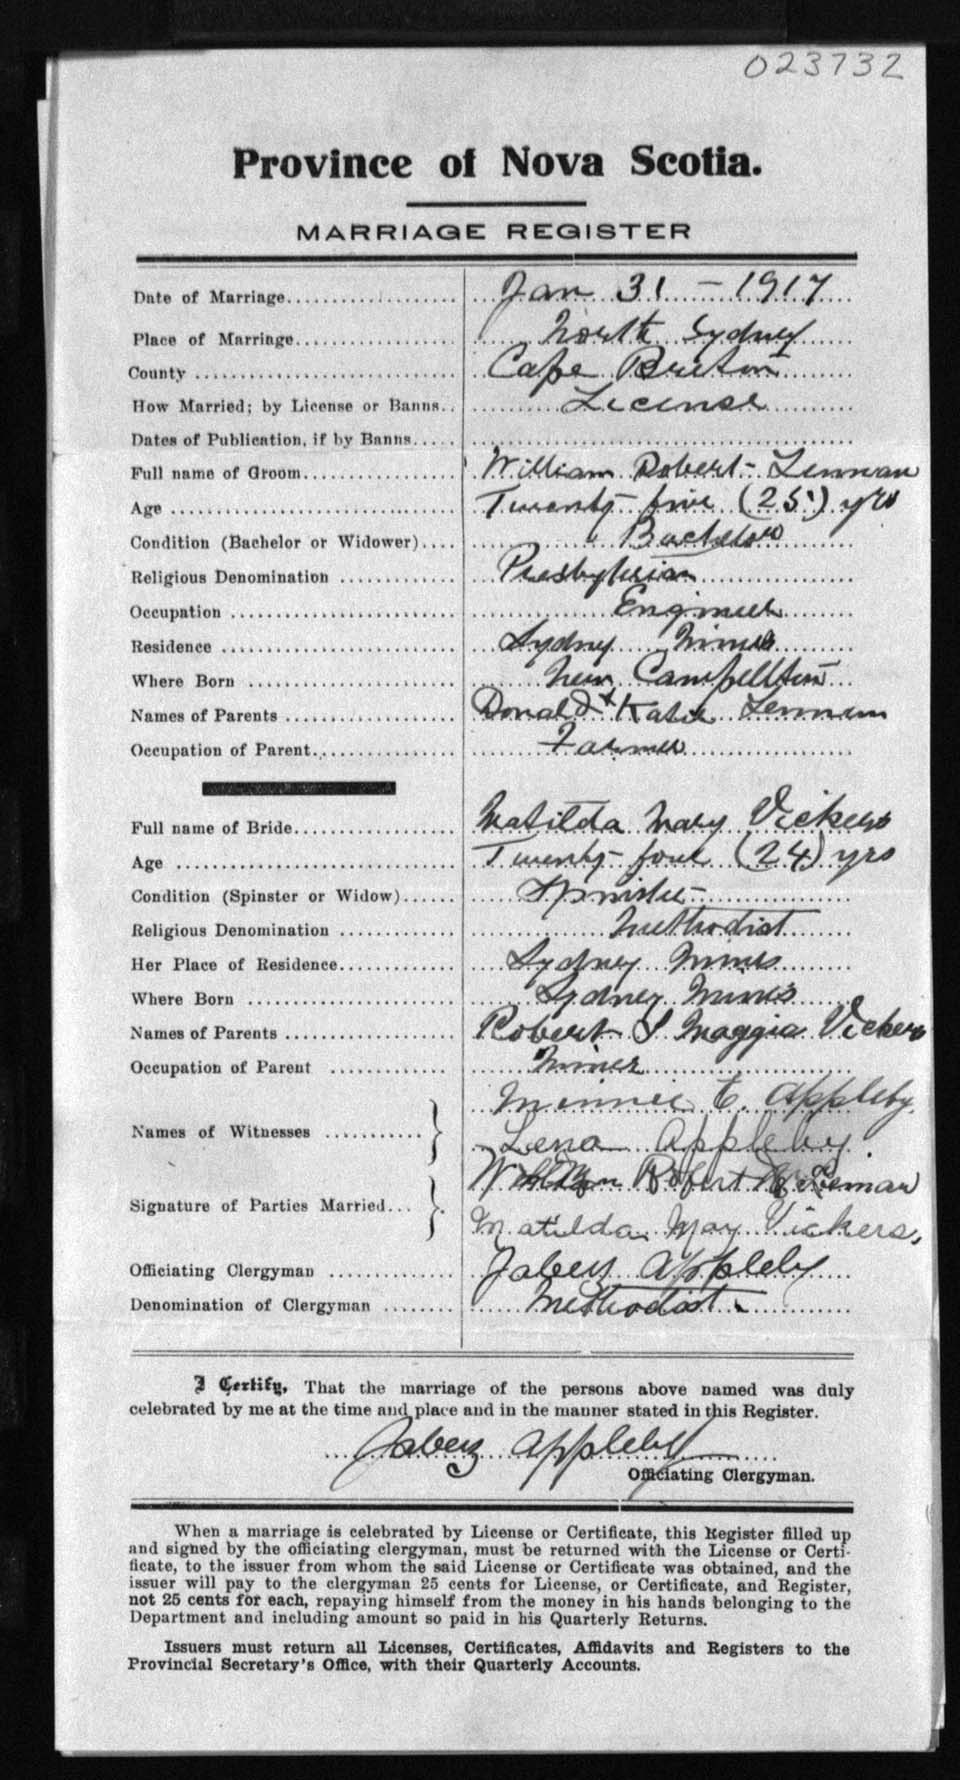 023732
Province of Nova Scotia.
MARRIAGE REGISTER
Date of Marriage.................... Jan 31 - 1917
Place of Marriage.................. North Sydney
County ............................ Cape Breton
How Married; by License or Banns.. License
Dates of Publication, if by Banns.....
Full name of Groom.................. William Robert Lennan
Age ............................... Twenty five (25) yrs
Condition (Bachelor or Widower).... Bachelor
Religious Denomination ............ Presbyterian
Occupation ........................ Engineer
Residence ......................... Sydney Mines
Where Born ........................ New Campellton
Names of Parents .................. Donald + Katie Lennan
Occupation of Parent............... Farmer
Full name of Bride................. Matilda Mary Vickers
Age ............................... Twenty four (24) yrs
Condition (Spinster or Widow)...... Spinister
Religious Denomination ............ Methodist
Her Place of Residence............. Sydney Mines
Where Born ........................ Sydney Mines
Names of Parents .................. Robert & Maggia Vickers
Occupation of Parent ............. Miner
Minnie E. Appleby
Names of Witnesses ...........} Lena Appleby.
William Robert Leman
Signature of Parties Married...}
Matilda May Vickers,
Officiating Clergyman .............. Jabez Appleby
Denomination of Clergyman ........ Methodist.
I Certify, That the marriage of the persons above named was duly
celebrated by me at the time and place and in the manner stated in this Register.
Jabez Appleby
Officiating Clergyman.
When a marriage is celebrated by License or Certificate, this Register filled up
and signed by the officiating clergyman, must be returned with the License or Certi-
ficate, to the issuer from whom the said License or Certificate was obtained, and the
issuer will pay to the clergyman 25 cents for License, or Certificate, and Register,
not 25 cents for each, repaying himself from the money in his hands belonging to the
Department and including amount so paid in his Quarterly Returns.
Issuers must return all Licenses, Certificates, Affidavits and Registers to the
Provincial Secretary's Office, with their Quarterly Accounts.